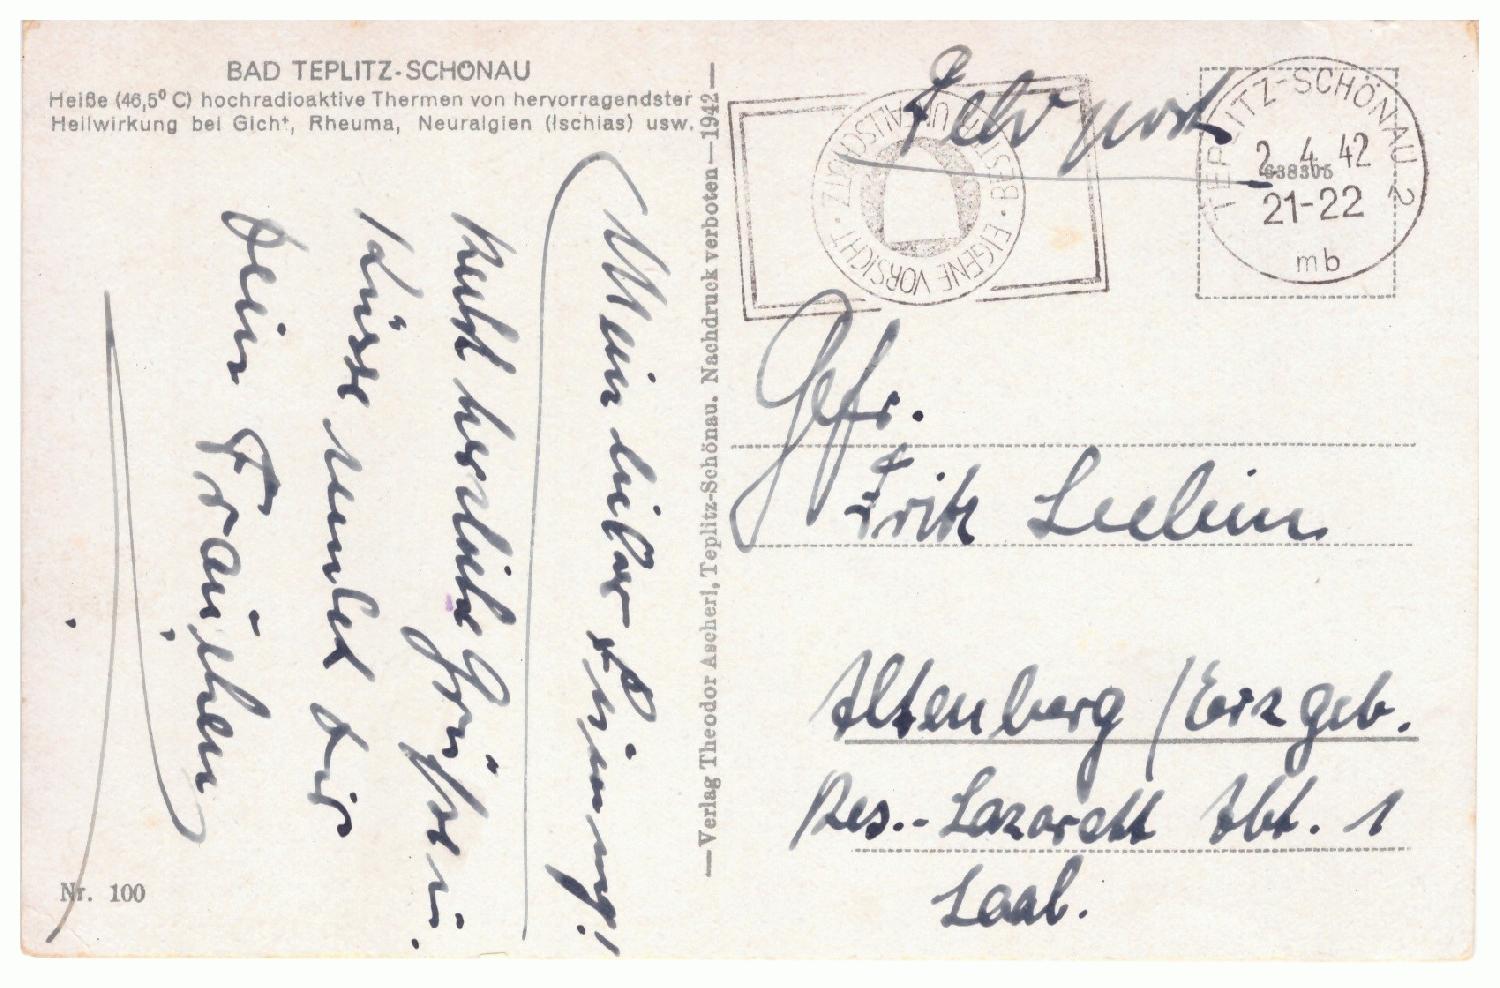 BAD TEPLITZ-SCHÖNAU
Heiße (46,5° C) hochradioaktive Thermen von hervorragendster
Heilwirkung bei Gicht, Rheuma, Neuralgien (Ischias) usw.
Mein lieber
Recht herzliche Grüße u.
Küsse sendet dir
Dein Frauchen
Nr. 100
—Verlag Theodor Ascherl, Teplitz-Schönau. Nachdruck verboten—1942—
Feldpost
EIGENE VORSICHT · BESTER UNFALLSCHUTZ ·
TEPLITZ-SCHÖNAU 2
2. 4. 42
638305
21-22
mb
Gefr.
Fritz
Altenberg / Erzgeb.
Res.-Lazarett Abt. 1
Saal.